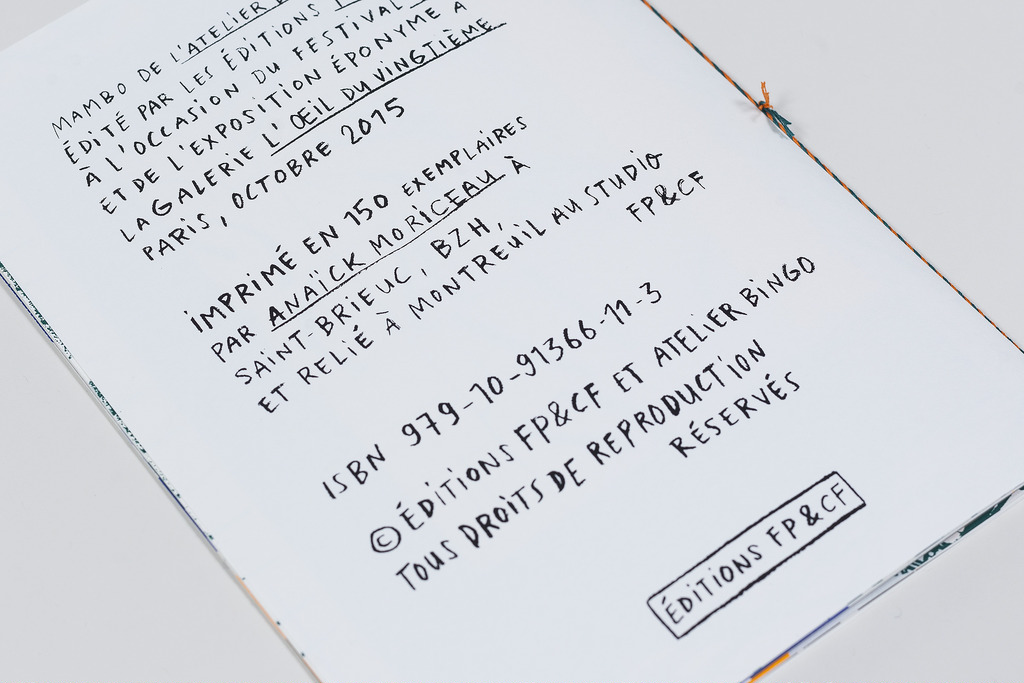 MAMBO DE L'ATELIER
ÉDITÉ PAR LES ÉDITIONS
À L'OCCASION DU FESTIVAL
ET DE L'EXPOSITION ÉPONYME A
LA GALERIE L'ŒIL DU VINGTIÈME
PARIS, OCTOBRE 2015
IMPRIMÉ EN 150 EXEMPLAIRES
PAR ANAÏCK MORICEAU À
SAINT-BRIEUC, BZH,
ET RELIÉ À MONTREUIL AU STUDIO
FP&CF
ISBN 979-10-91366-11-3
© ÉDITIONS FP&CF ET ATELIER BINGO
TOUS DROITS DE REPRODUCTION
RÉSERVÉS
ÉDITIONS FP&CF